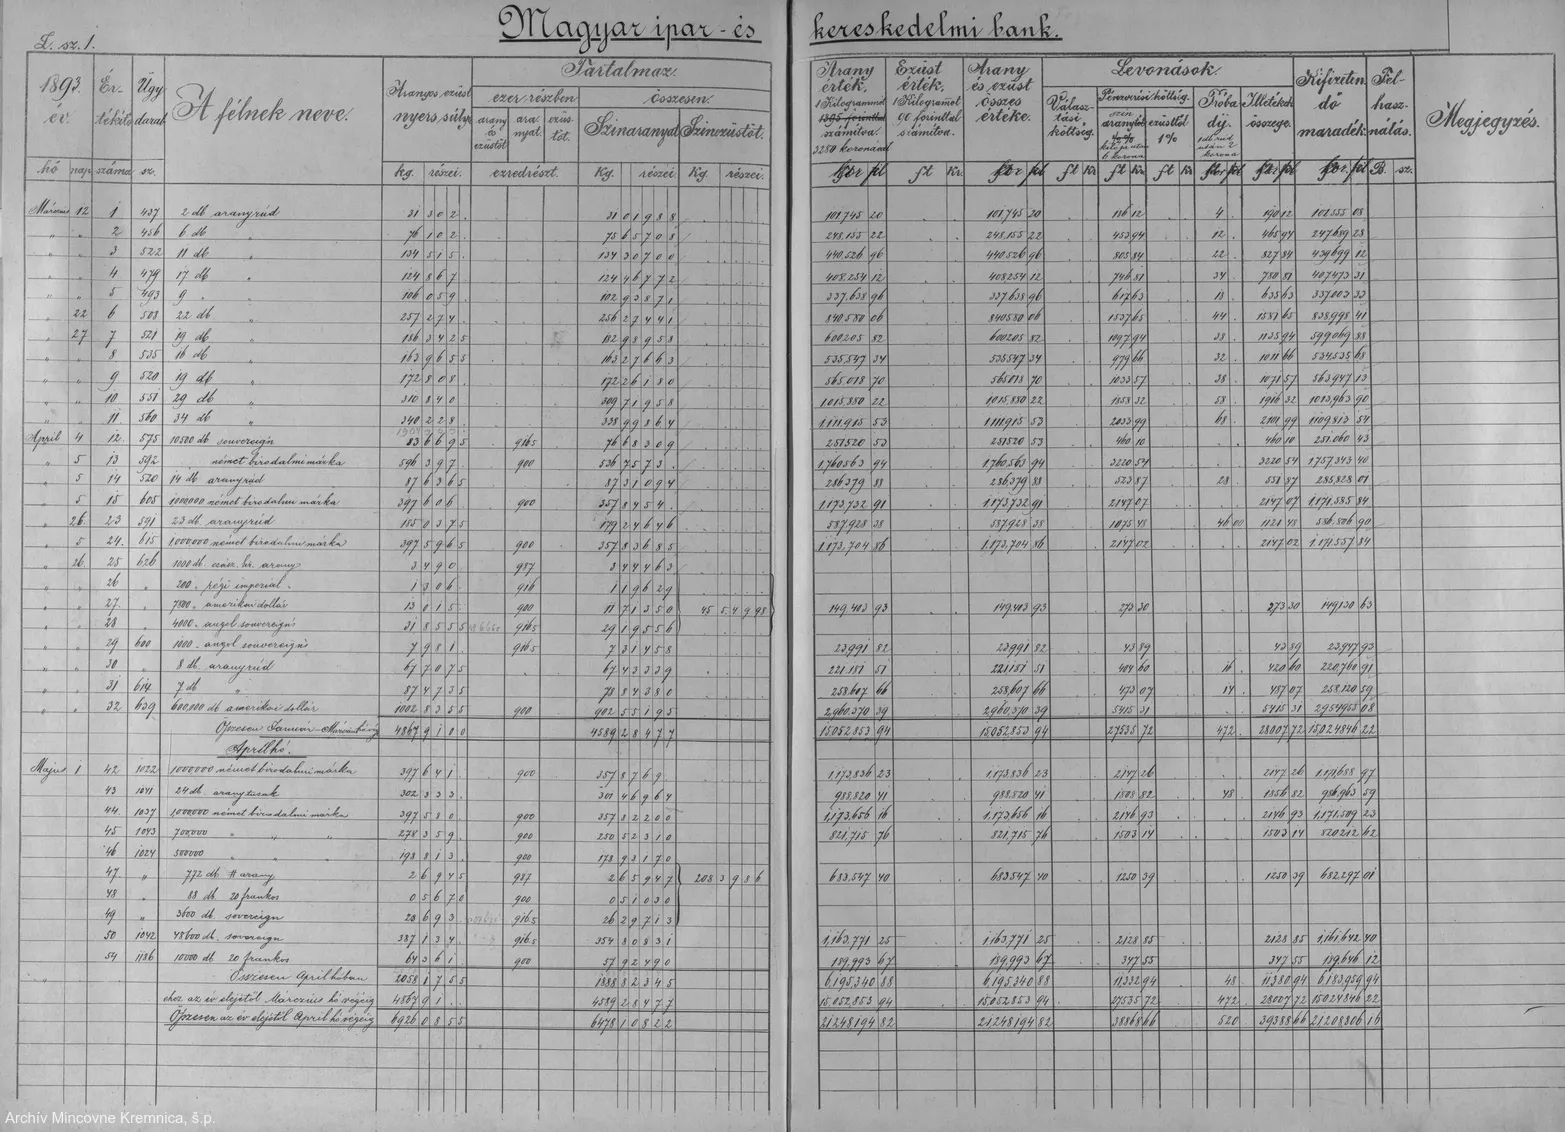 Magyar ipar- és kereskedelmi bank.
L. sz. 1.
1893. év.
hó nap
Értékité száma
Ügy darab sz.
A félnek neve.
Aranyos ezüst nyers súlya
kg. részei.
Tartalmaz.
ezer részben
arany és ezüstöt
aranyat.
ezüstöt.
ezredrészt.
összesen.
Szinaranyat
Kg. részei.
Szinezüstöt.
Kg részei.
Arany érték, 1 Kilogrammot 1395 forinttal számitva. 3280 koronával
Ezüst érték, 1 Kilogramot 90 forinttal számitva.
ft Kr.
Arany és ezüst összes értéke.
Levonások.
Választási költség.
ft Kr
Pénzverési költség.
ezüsttől 1%
ft Kr
Próba díj.
Illetékek összege.
Kifizetendő maradék.
Felhasználás.
B. sz.
Megjegyzés.
Márczius 12 1 437 2 db aranyrúd 31 302 31 01988 101.745 20 101.745 20 186 12 4 190 12 101555 08
2 456 6 db 76 102 75 65708 248,155 22 248,155 22 453 94 12 465 94 247689 23
3 522 11 db 134 515 134 30700 440.526 96 440.526 96 805 84 22 827 84 439699 12
4 479 17 db 124 867 124 46772 408.254 12 408254 12 746 81 34 780 81 407473 31
5 493 9 106 059 102 93871 337.638 96 337.638 96 617 63 18 635 63 337003 33
22 6 508 22 db 257 274 256 27441 840580 06 840580 06 1537 65 44 1581 65 838,998 41
27 7 521 19 db 186 3425 182 98958 600205 82 600205 82 1097 94 38 1135 94 599069 88
8 535 16 db 163 9655 163 27663 535.547 34 535.547 34 979 66 32 1011 66 534535 68
9 520 19 db 172 808 172 26180 565.018 70 565018 70 1033 57 38 1071 57 563947 13
10 551 29 db 310 840 309 71958 1015,880 22 1015,880 22 1858 32 58 1916 32 1013,963 90
11 560 34 db 340 228 338 99864 1,111,915 53 1,111,915 53 2033 99 68 2101 99 1109813 54
April 4 12 575 10500 db souvereign 83 6695 916.5 76 68309 251520 53 251520 53 460 10 460 10 251.060 43
5 13 592 német birodalmi márka 596 397 900 536 7573 1,760563 94 1,760,563 94 3220 54 3220 54 1757343 40
5 14 520 14 db aranyrúd 87 6365 87 31094 286,379 88 286,379 88 523 87 28 551 87 285828 01
5 15 605 1000000 német birodalmi márka 397 606 900 357 8454 1,173,732 91 1,173,732 91 2147 07 2147 07 1,171,585 84
26 23 591 23 db aranyrúd 185 0375 179 24646 587,928 38 587,928 38 1075 48 46 00 1121 48 586,806 90
5 24 615 1000000 német birodalmi márka 397 5965 900 357 83685 1,173,704 86 1,173,704 86 2147 02 2147 02 1,171,557 84
26 25 626 1000 db arany 3 490 987 3 44463
26 200 régi imperial 1 306 916 1 19629
27 7800 amerikai dollár 13 015 900 11 71350 45 54998 149.403 93 149.403 93 273 30 273 30 149130 63
28 4000 angol souvereign 31 8555 916.5 29 19556
29 600 1000 angol souvereign 7 981 916.5 7 31458 23991 82 23991 82 43 89 43 89 23,947 93
30 8 db aranyrúd 67 7075 67 43339 221,181 51 221,181 51 404 60 16 420 60 220,760 91
31 614 7 db 87 4735 78 84380 258,607 66 258,607 66 473 07 14 487 07 258,120 59
32 639 600,000 db amerikai dollár 1002 8355 900 902 55195 2,960,370 39 2,960,370 39 5415 31 5415 31 2954955 08
Öszesen Január-Márczius hó végig 4867 9100 4589 28477 15052853 94 15052,853 94 27535 72 472 28007 72 15024846 22
Április hó.
Május 1 42 1022 1000,000 német birodalmi márka 397 641 900 357 8769 1,173,836 23 1,173,836 23 2147 26 2147 26 1,171,688 97
43 1041 24 db 302 333 301 46964 988,820 41 988,820 41 1808 82 48 1856 82 986,963 59
44 1037 1,000000 német birodalmi márka 397 580 900 357 82200 1,173,656 16 1,173,656 16 2146 93 2146 93 1,171,509 23
45 1043 700,000 278 359 900 250 52310 821,715 76 821,715 76 1503 14 1503 14 820212 62
46 1024 500000 198 813 900 178 93170
47 772 db # arany 2 6945 987 2 65947 208 3986 683.547 40 683.547 40 1250 39 1250 39 682297 01
48 88 db 20 frankos 0 5670 900 0 51030
49 3600 db sovereign 28 693 916.5 26 29713
50 1042 48600 db sovereign 387 134 916.5 354 80831 1,163,771 25 1,163,771 25 2128 85 2128 85 1,161,642 40
54 1186 10000 db 20 frankos 64 361 900 57 92490 189,993 67 189,993 67 347 55 347 55 189,646 12
Összesen April hóban 2058 1755 1888 82345 6,195,340 88 6,195,340 88 11332 94 48 11380 94 6,183,959 94
ehez az év elejétől Márczius hó végéig 4867 91 4589 28477 15,052,853 94 15,052853 94 27535 72 472 28007 72 15024846 22
Öszesen az év elejétől April hó végéig 6926 0855 6478 10822 21248194 82 21,248194 82 38868 66 520 39388 66 21208806 16
Archív Mincovne Kremnica, š.p.